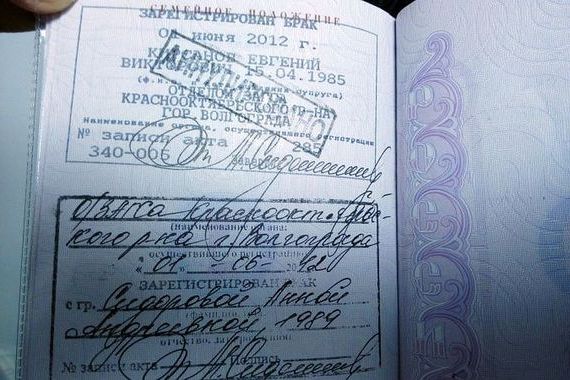 СЕМЕЙНОЕ ПОЛОЖЕНИЕ
ЗАРЕГИСТРИРОВАН БРАК
ИЮНЯ 2012 Г.
ЕВГЕНИЙ
15.04.1985
КРАСНООКТЯБРЬСКОГО Р-НА
ГОР. ВОЛГОГРАДА
Наименование органа, осуществившего регистрацию
№ записи акта 285
340-006
ОЗАГСа Краснооктябрьс-
кого р-на г. Волгограда
(наименование органа,
осуществившего регистрацию)
06
ЗАРЕГИСТРИРОВАН БРАК
с гр. Сидоровой Анной
Андреевной, 1989
отчество, дата рождения
№ записи акта Подпись